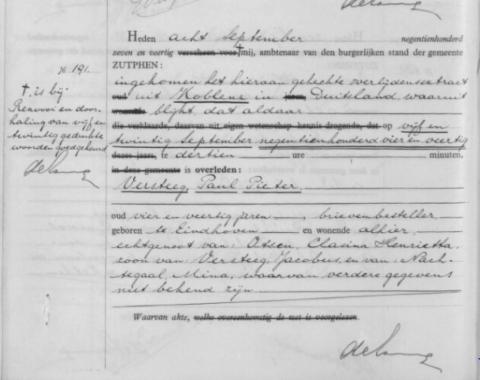 Heden acht September negentienhonderd
zeven en veertig verscheen voor mij, ambtenaar van den burgerlijken stand der gemeente
ZUTPHEN:
ingekomen het hieraan gehechte overlijdensextract
oud uit Koblenz in jaren, Duitsland, waaruit
blijkt, dat aldaar
die verklaarde, daarvan uit eigen wetenschap kennis dragende, dat op vijf en
twintig September negentienhonderd vier en veertig
dezes jaars, te dertien ure minuten,
in deze gemeente is overleden:
Versteeg, Paul Pieter
oud vier en veertig jaren, brievenbesteller
geboren te Eindhoven en wonende alhier,
echtgenoot van: Otsen, Clasina Henrietta,
zoon van Versteeg, Jacobus, en van: Nach-
tegaal, Mina, waarvan verdere gegevens
niet bekend zijn.
Waarvan akte, welke overeenkomstig de wet is voorgelezen.
No 191.
† is bij
Renvooi en door-
haling van vijf en
twintig gedrukte
woorden goedgekeurd